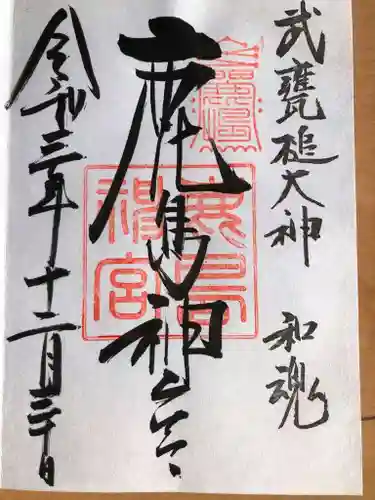 武甕槌大神 和魂
鹿島神宮
鹿島
神宮
令和三年十二月三十日